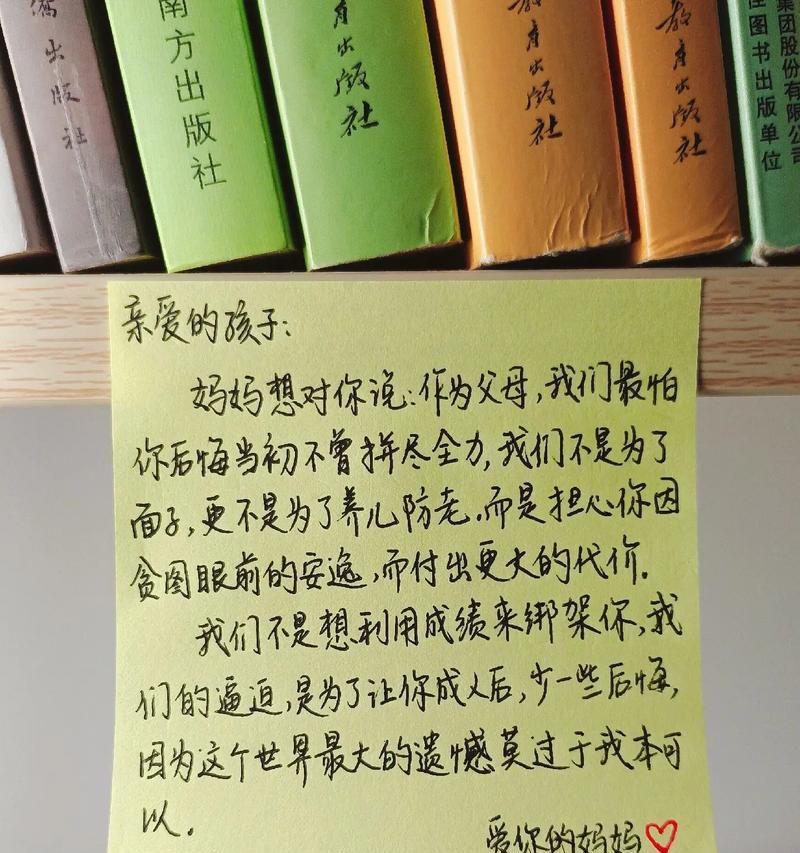 出版社
南方出版社
育出版社
教育出版社
教育出版社
集团股份有限公司
佳图书出版单位
亲爱的孩子:
妈妈想对你说:作为父母,我们最怕
你后悔当初不曾拼尽全力,我们不是为了
面子,更不是为了养儿防老,而是担心你因
贪图眼前的安逸,而付出更大的代价.
我们不是想利用成绩来绑架你,我
们的逼迫,是为了让你成人后,少一些后悔,
因为这个世界最大的遗憾莫过于我本可
以.
爱你的妈妈